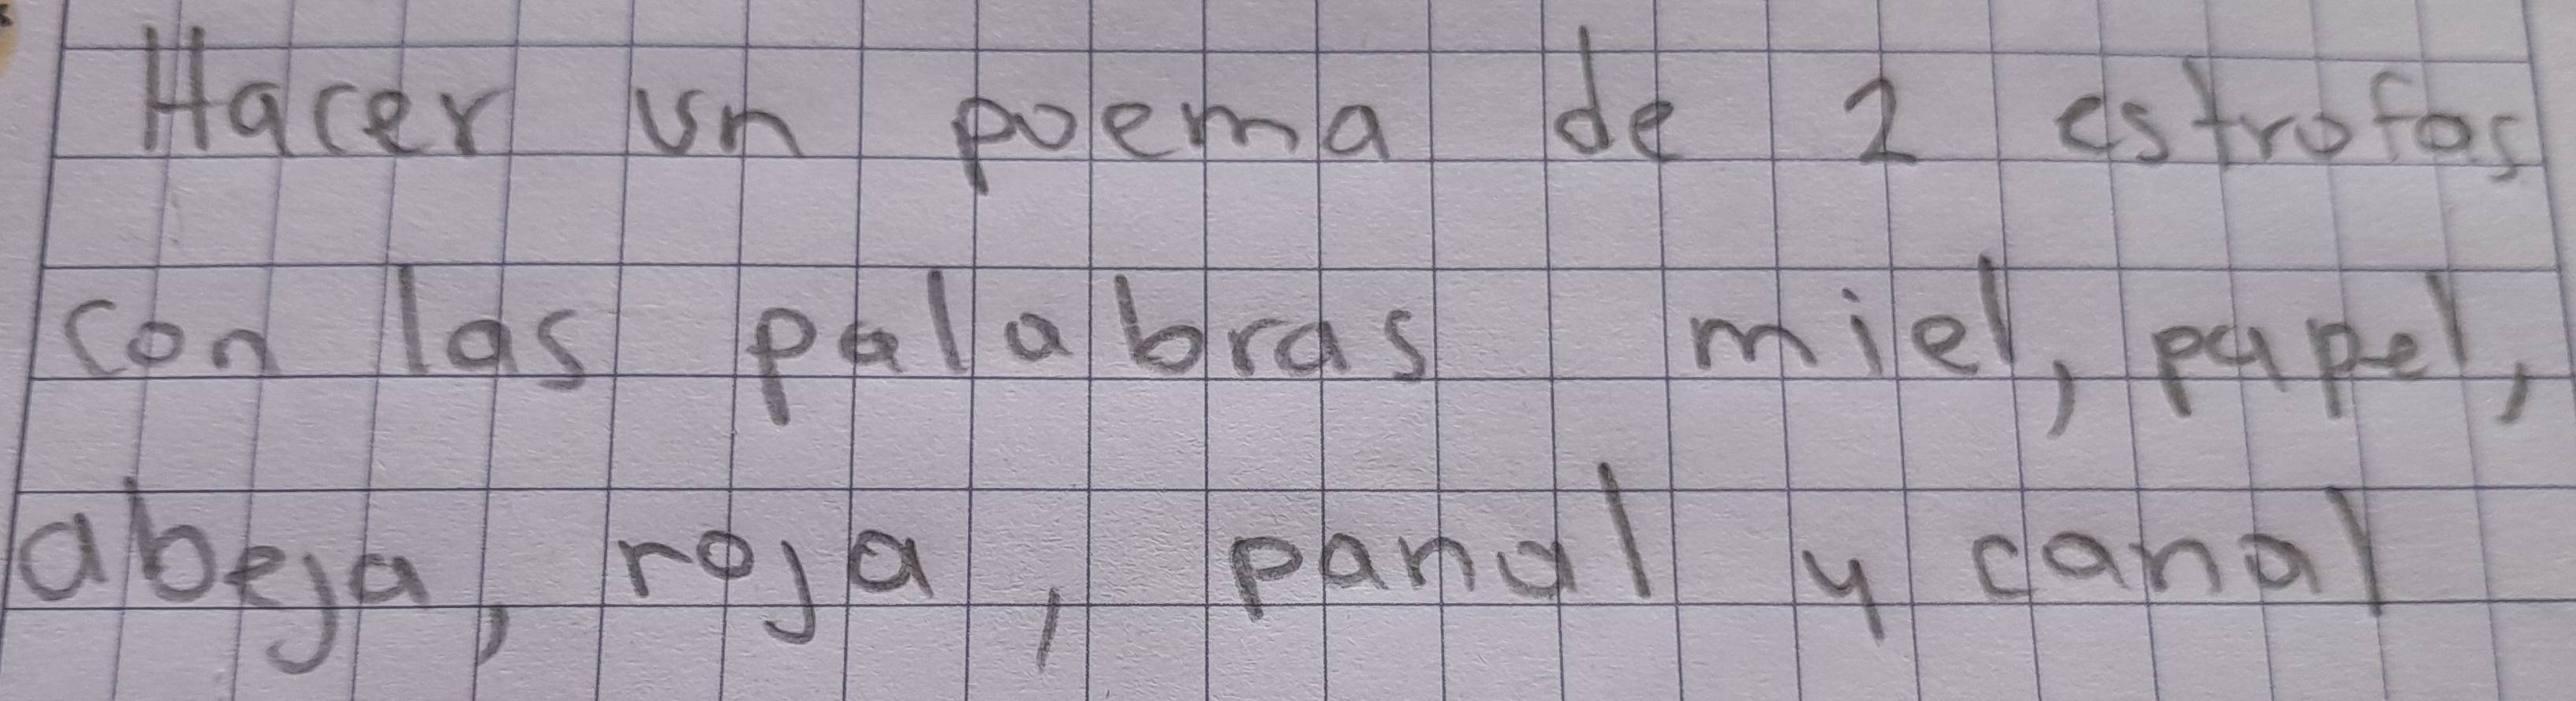 Hacer un poema de 2 estrofas
con las palabras miel, papel,
abeja, roja, panal y canal